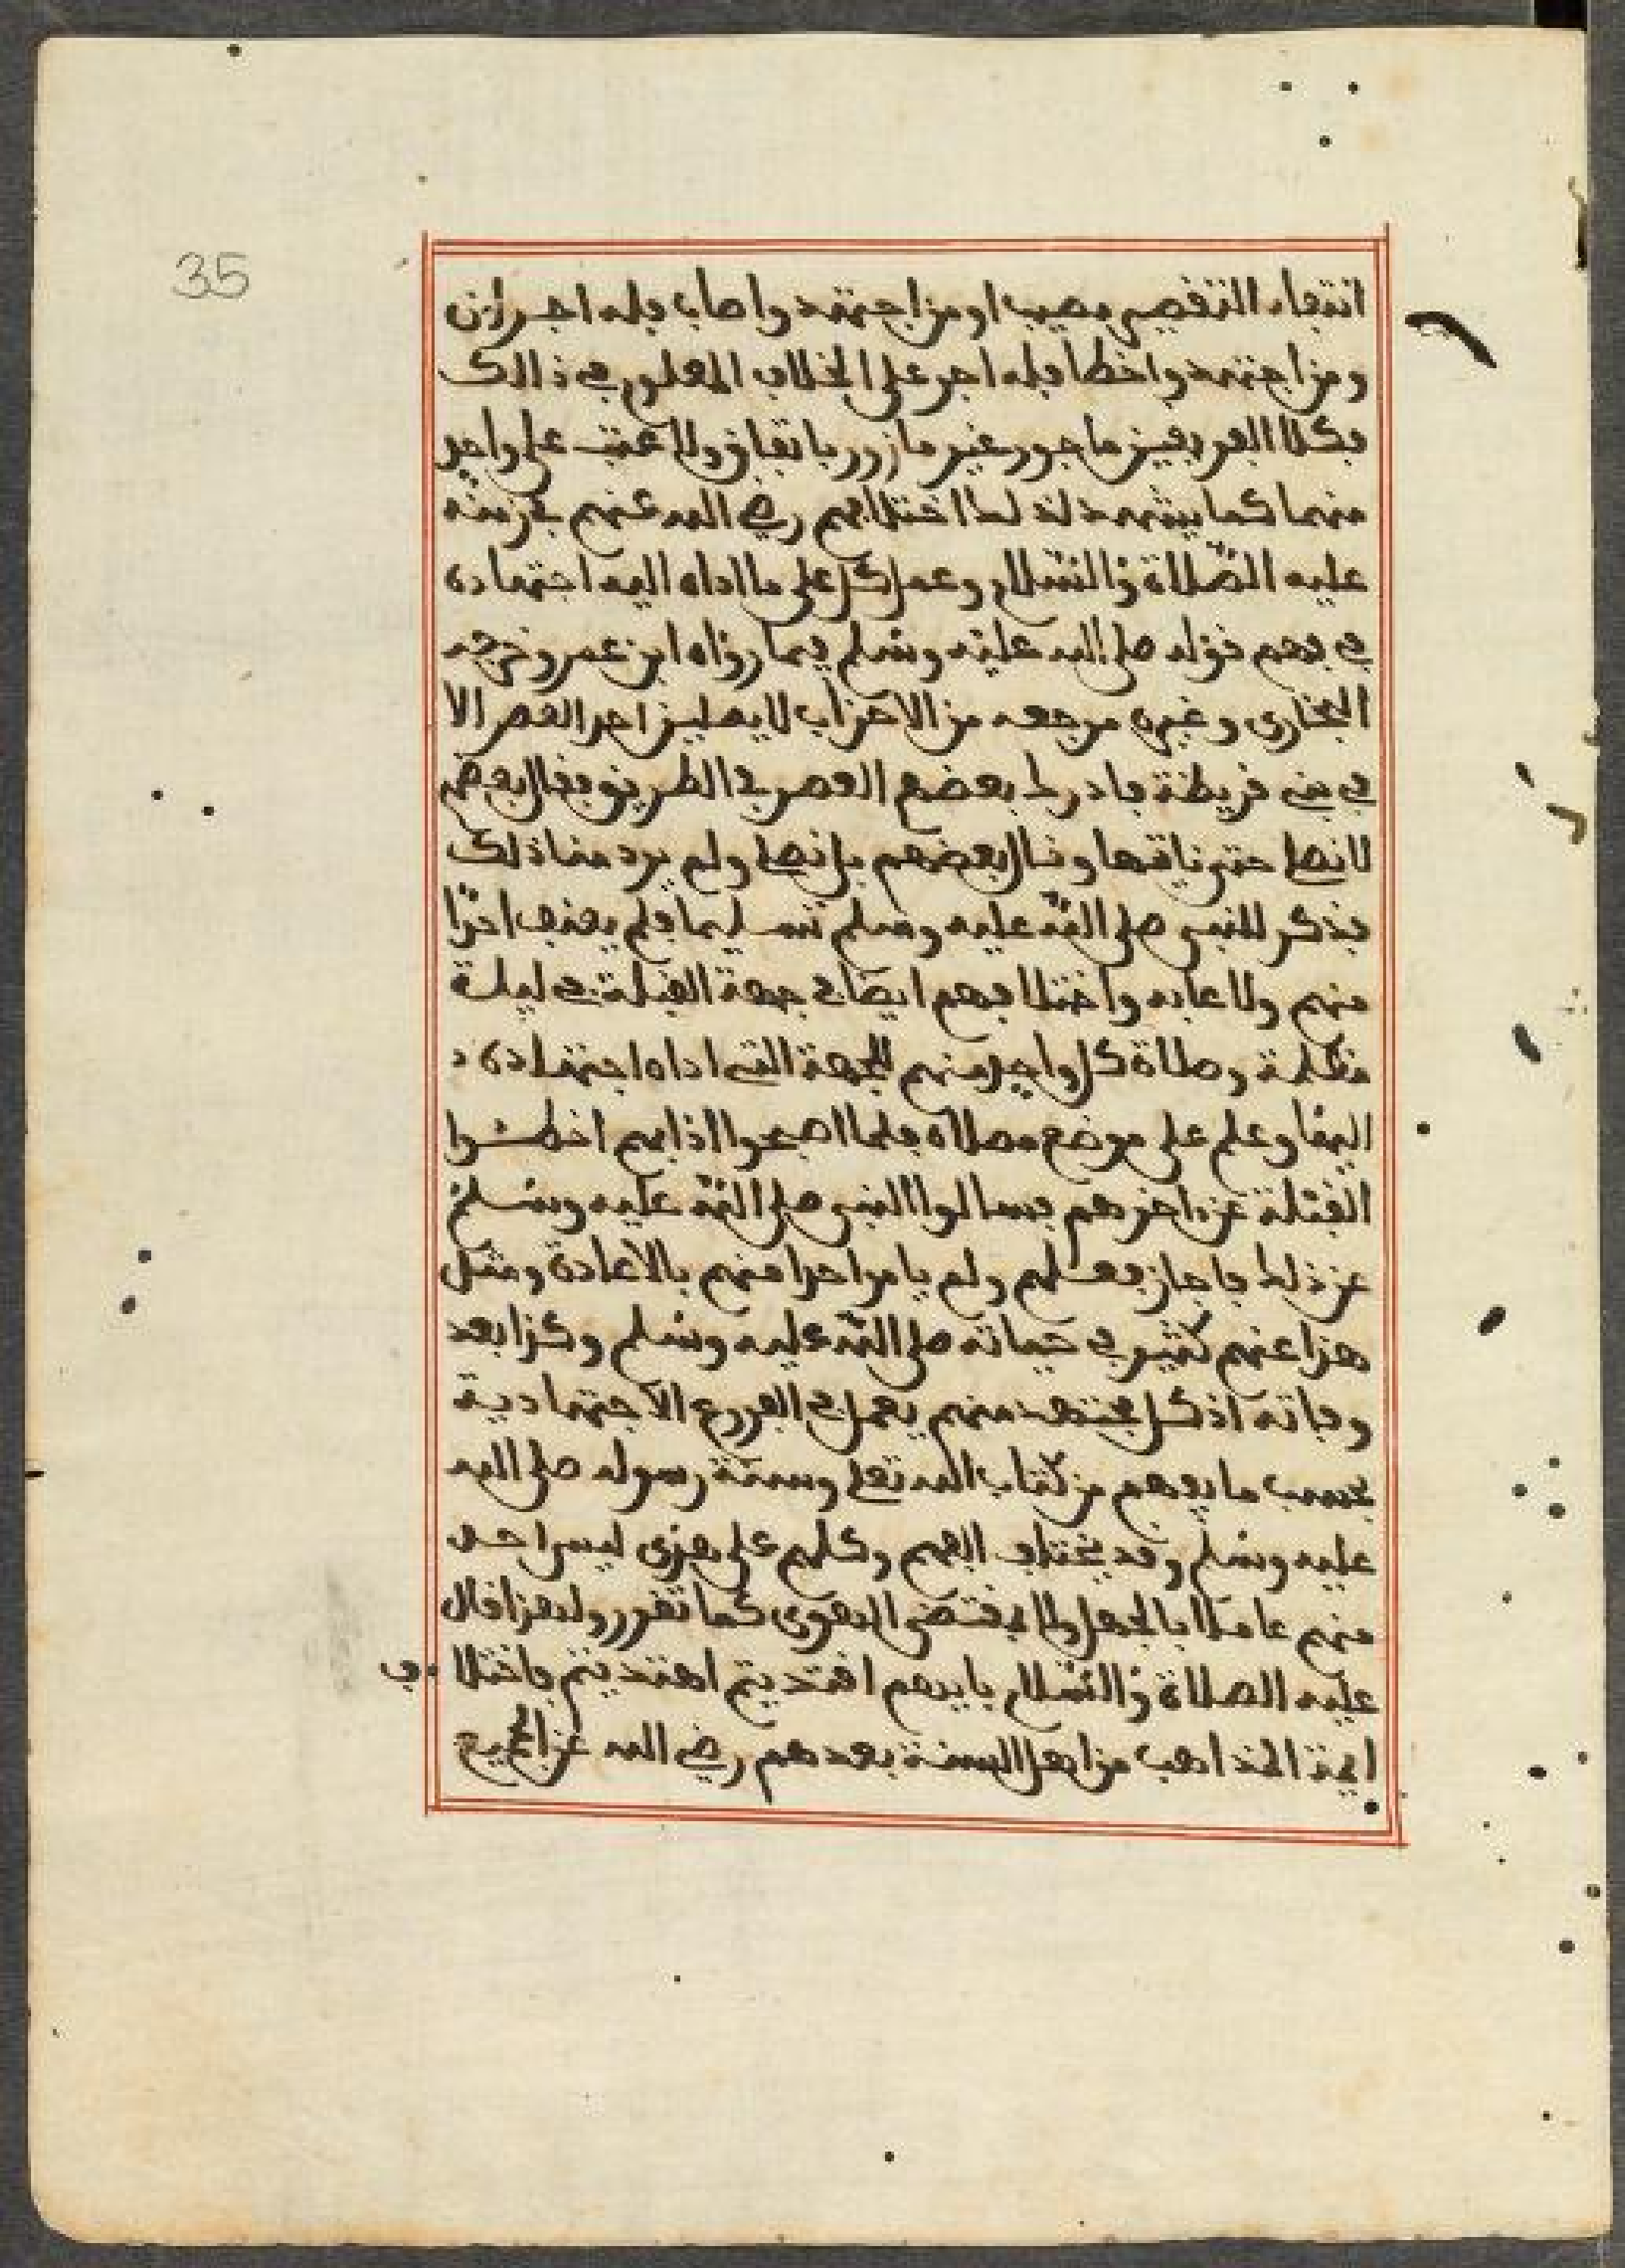 35
انتفاء التقصير مصيب او من اجتهد واصاب فله اجران
ومن اجتهد واخطا فله اجر على الخلاف المعلوم في ذالك
فكلا الفريقين ماجور غير مازور باتفاق ولا عتب على واحد
منهما كما يشهد لذلك اختلافهم رضي الله عنهم في زمنه
عليه الصّلاة والسّلام وعمل كل على ما اداه اليه اجتهاده
في فهم قوله صلى الله عليه وسلم فيما رواه ابن عمر وخرجه
البخاري وغيره مرجعه من الاحزاب لا يصلين احد العصر الا
في بني قريظة فادرك بعضهم العصر في الطريق فقال بعضهم
لا نصلي حتى ناتيها وقال بعضهم بل نصلي ولم يرد منا ذلك
فذكر للنبي صلى الله عليه وسلم تسليما فلم يعنف احدا
منهم ولا عابه واختلافهم ايضا في جهة القبلة في ليلة
مظلمة وصلاة كل واحد منهم للجهة التي اداه اجتهاده
اليها وعلم على موضع مصلاه فلما اصبحوا اذا بهم اخطئوا
القبلة عن اخرهم فسالوا النبي صلى الله عليه وسلم
عن ذلك فاجاز فعلهم ولم يامر احدا منهم بالاعادة ومثل
هذا عنهم كثير في حياته صلى الله عليه وسلم وكذا بعد
وفاته اذ كل مجتهد منهم يعمل في الفروع الاجتهادية
بحسب ما يفهم من كتاب الله تعلى وسنة رسوله صلى الله
عليه وسلم وقد يختلف الفهم وكلهم على هدى ليس احد
منهم عاملا بالجهل ولا بمقتضى الهوى كما تقرر ولهذا قال
عليه الصلاة والسّلام بايهم اقتديتم اهتديتم فاختلاف
ايمة المذاهب من اهل السنة بعدهم رضي الله عن الجميع